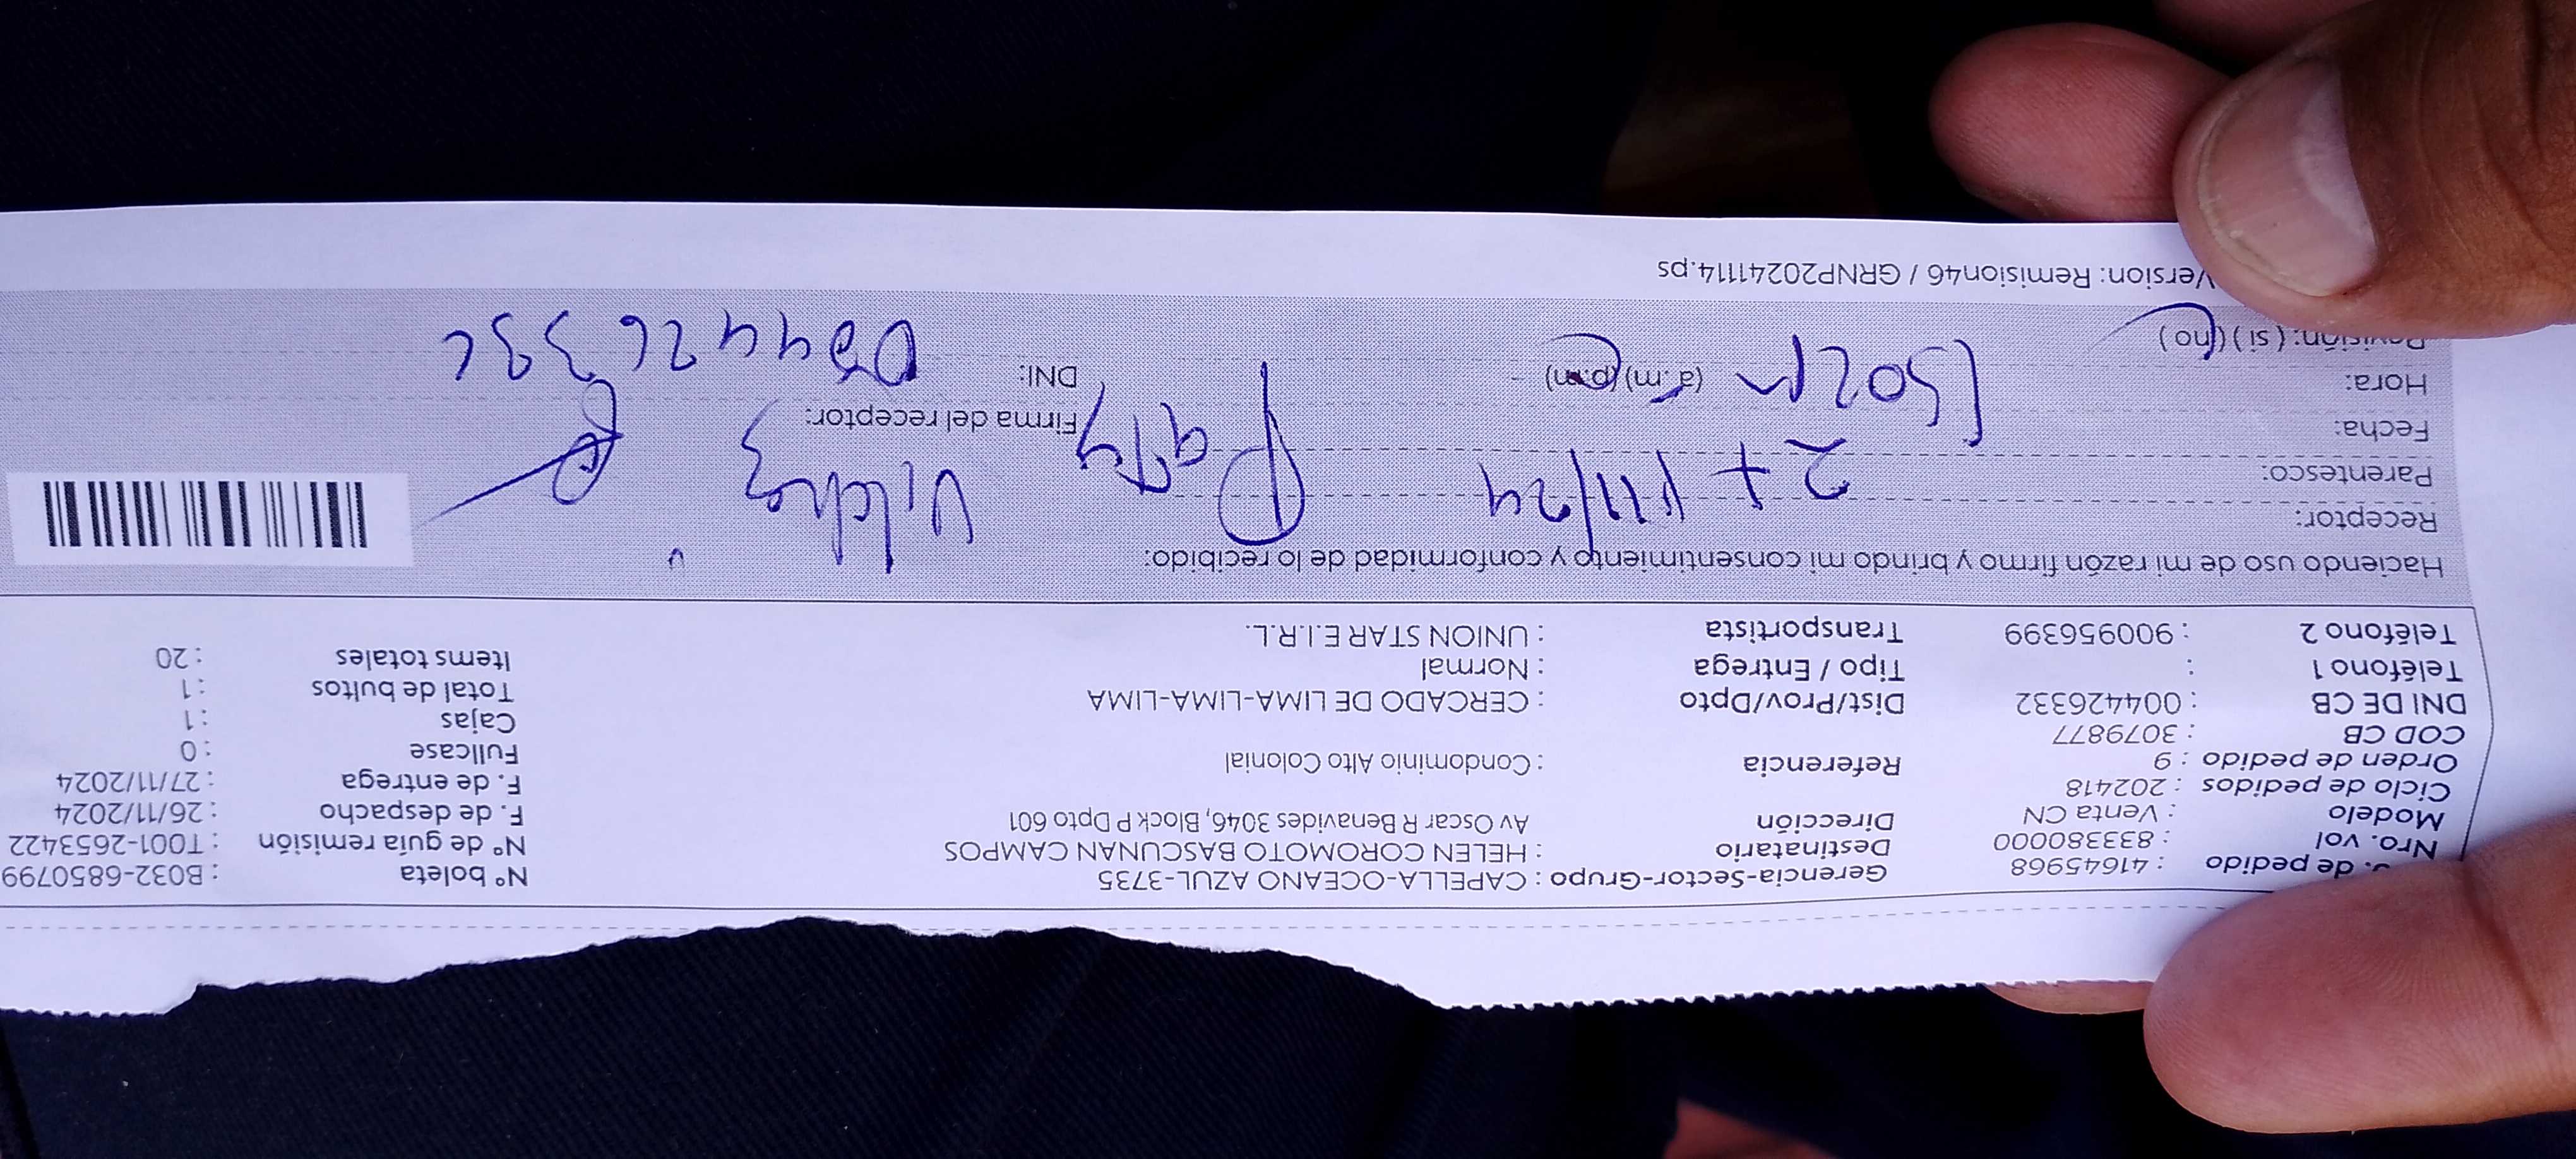 . de pedido : 41645968 Gerencia-Sector-Grupo : CAPELLA-OCEANO AZUL-3735 N° boleta : B032-6850799
Nro. vol : 833380000 Destinatario : HELEN COROMOTO BASCUNAN CAMPOS N° de guía remisión : T001-2653422
Modelo : Venta CN Dirección Av Oscar R Benavides 3046, Block P Dpto 601 F. de despacho : 26/11/2024
Ciclo de pedidos : 202418 F. de entrega : 27/11/2024
Orden de pedido : 9 Referencia : Condominio Alto Colonial Fullcase : 0
COD CB : 3079877 Cajas : 1
DNI DE CB : 004426332 Dist/Prov/Dpto : CERCADO DE LIMA-LIMA-LIMA Total de bultos : 1
Teléfono 1 : Tipo / Entrega : Normal Items totales : 20
Teléfono 2 : 900956399 Transportista : UNION STAR E.I.R.L.
Haciendo uso de mi razón firmo y brindo mi consentimiento y conformidad de lo recibido:
Receptor: Paty Vilchez
Parentesco:
Fecha: 27/11/24 Firma del receptor:
Hora: (a.m) (p.m) DNI:
Revisión: ( si ) ( no )
Version: Remision46 / GRNP20241114.ps